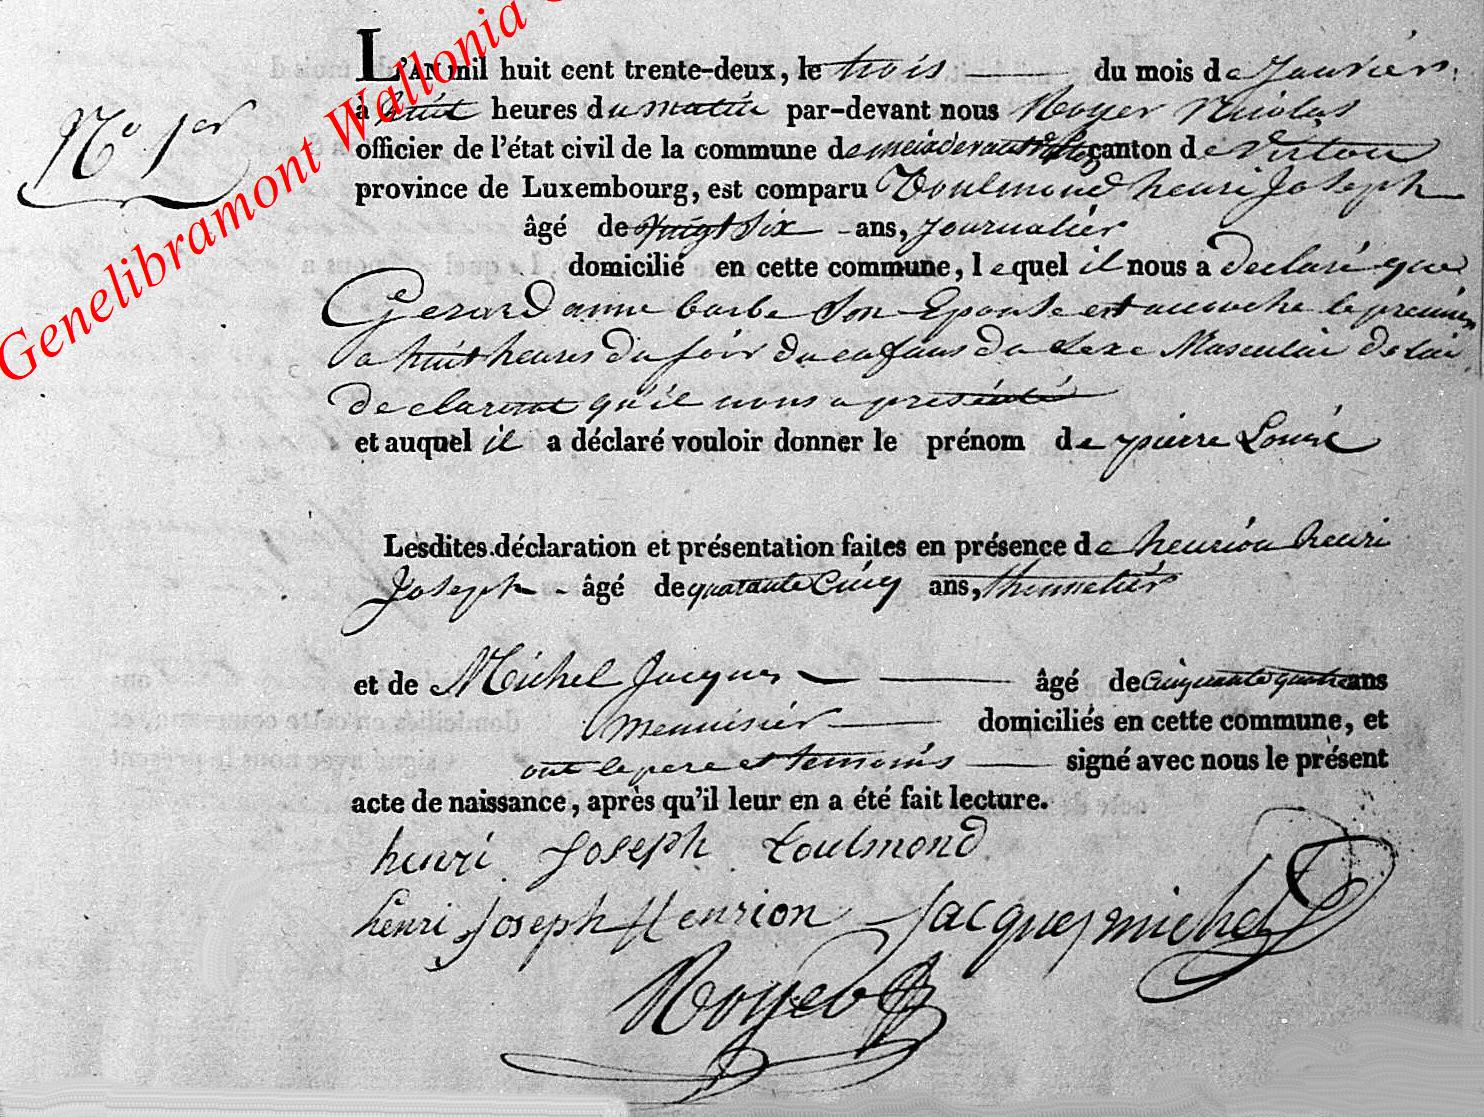 Genelibramont Wallonia
N° 1er
L'AN mil huit cent trente-deux, le trois du mois de Janvier,
à huit heures du matin par-devant nous Royer Nicolas
officier de l'état civil de la commune de canton de Virton
province de Luxembourg, est comparu Toulmond henri Joseph
âgé de vingt Six ans, Journalier
domicilié en cette commune, lequel il nous a declaré que
Gerard anne barbe Son Epouse est accouche le premier
a huit heures du soir du enfans du Sexe Masculin de lui
declarant qu'il nous a presénté
et auquel il a déclaré vouloir donner le prénom de pierre Louis
Lesdites déclaration et présentation faites en présence de henrion henri
Joseph âgé de quarante Cinq ans,
et de Michel Jacques âgé de Cinquante quatre ans
menuisier domiciliés en cette commune, et
ont le pere et temoins signé avec nous le présent
acte de naissance, après qu'il leur en a été fait lecture.
henri Joseph toulmond
henri Joseph Henrion Jacques michel
Royer